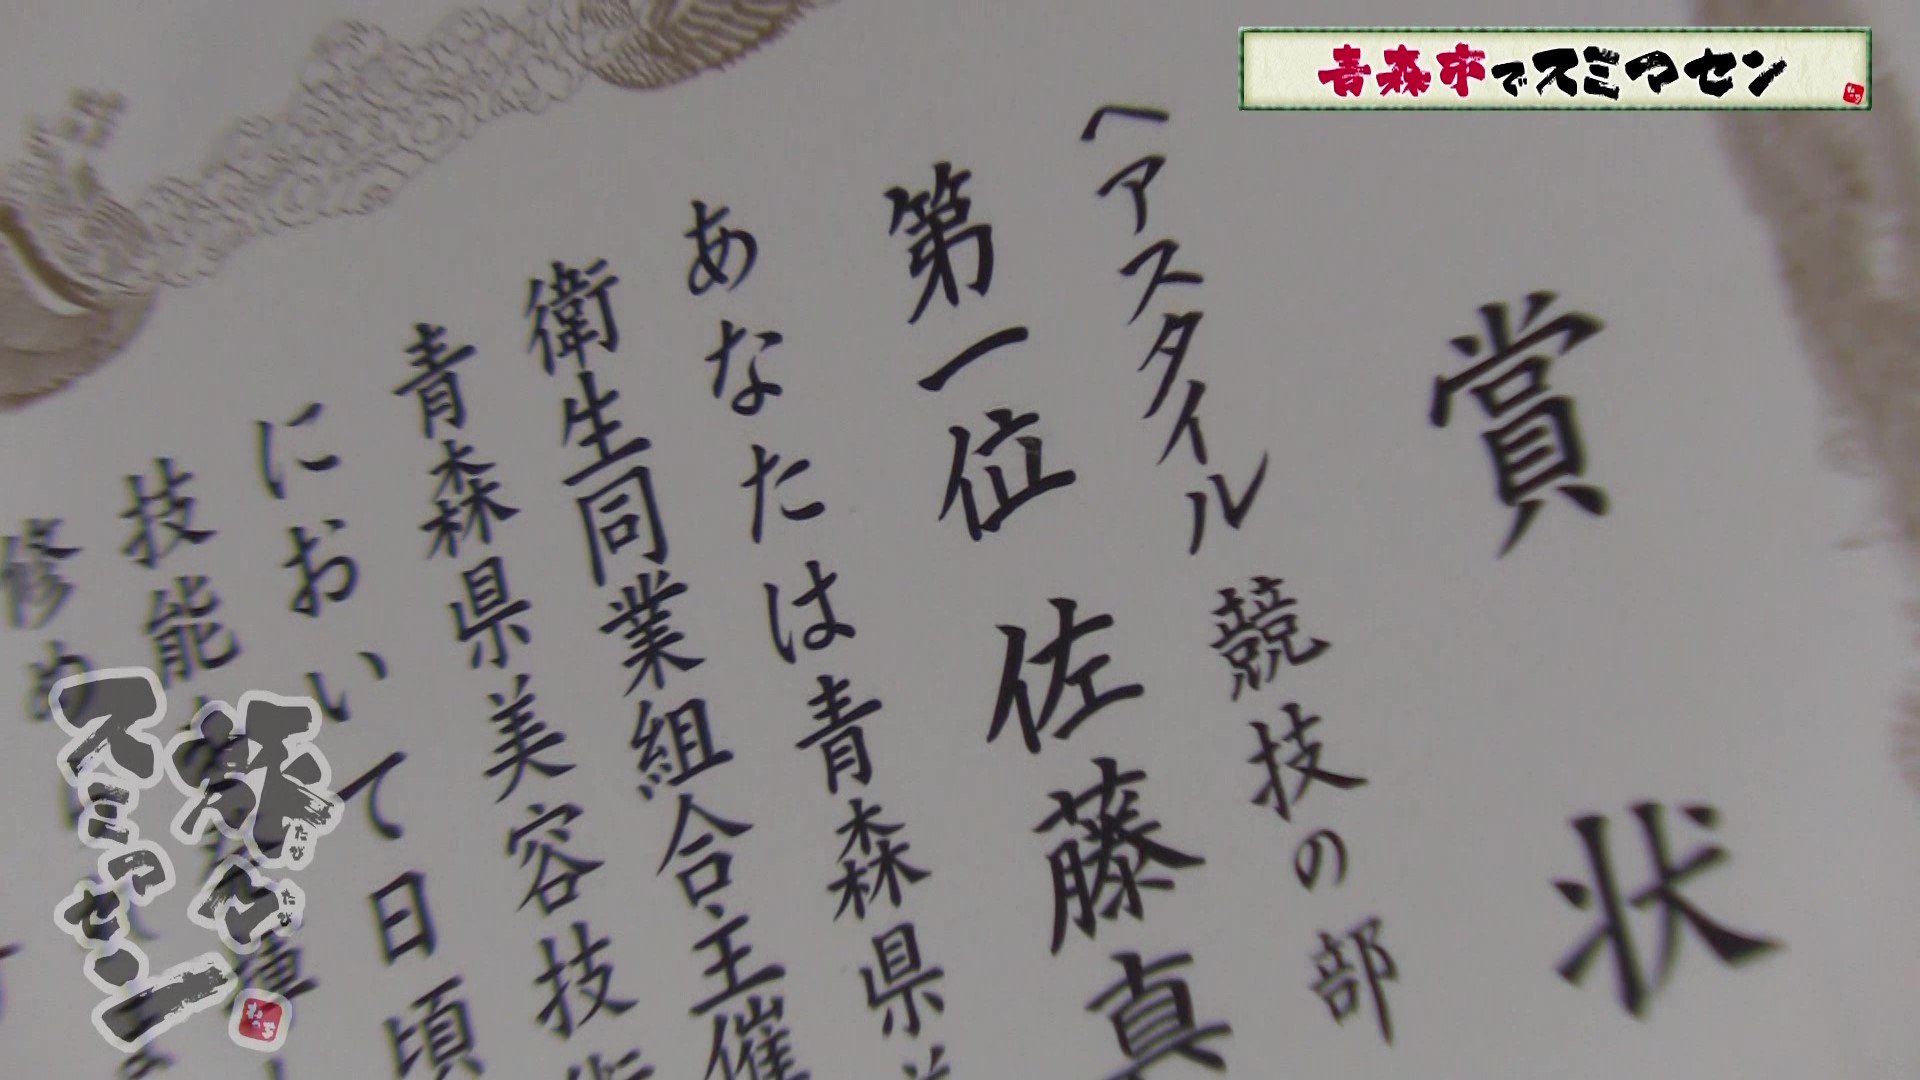 青森市でスミマセン
賞 状
ヘアスタイル競技の部
第一位 佐藤真
あなたは青森県
衛生同業組合主催
青森県美容技
において日頃
技能
修め
旅旅
たびたび
スミマセン